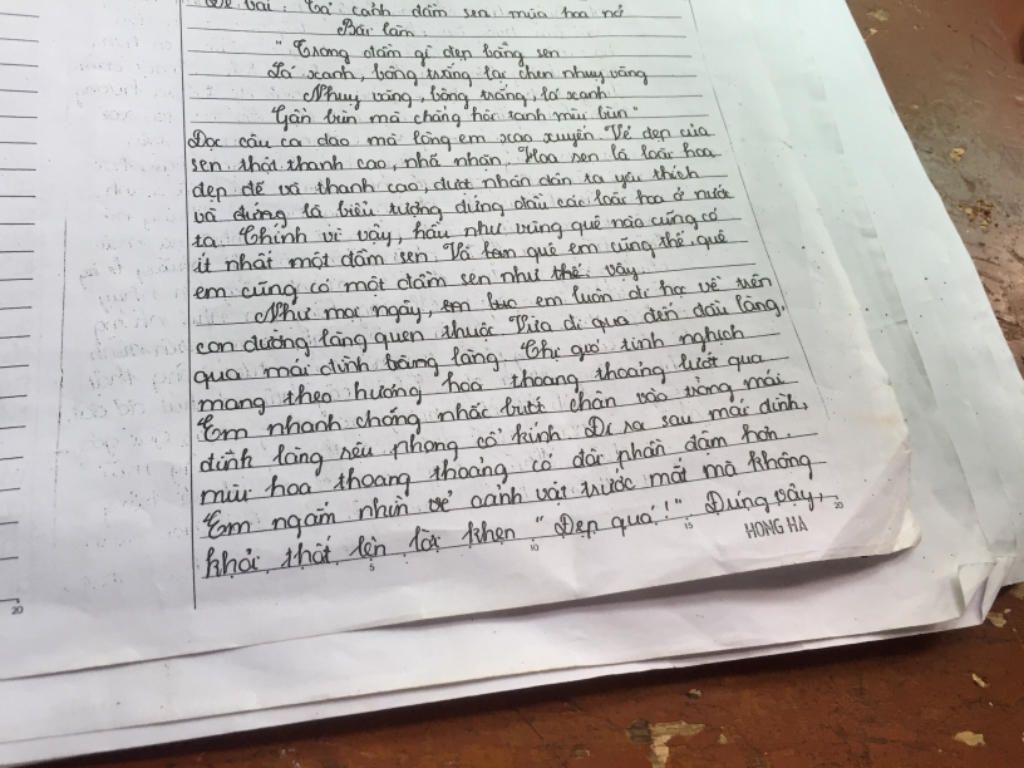 Đề bài: Tả cảnh đầm sen mùa hoa nở
Bài làm
"Trong đầm gì đẹp bằng sen
Lá xanh, bông trắng lại chen nhuỵ vàng
Nhuỵ vàng, bông trắng, lá xanh
Gần bùn mà chẳng hôi tanh mùi bùn"
Đọc câu ca dao mà lòng em xao xuyến. Vẻ đẹp của
sen thật thanh cao, nhã nhặn. Hoa sen là loài hoa
đẹp đẽ và thanh cao, được nhân dân ta yêu thích
và đứng là biểu tượng đứng đầu các loài hoa ở nước
ta. Chính vì vậy, hầu như vùng quê nào cũng có
ít nhất một đầm sen. Và quê em cũng thế, quê
em cũng có một đầm sen như thế vậy.
Như mọi ngày, em luôn đi học về trên
con đường làng quen thuộc. Vừa đi qua đến đầu làng,
qua mái đình bằng lăng. Chị gió tinh nghịch
mang theo hương hoa thoang thoảng lướt qua
Em nhanh chóng nhấc bước chân vào vòng mái
đình làng rêu phong cổ kính. Đi ra sau mái đình,
mùi hoa thoang thoảng có đôi phần đậm hơn.
Em ngắm nhìn vẻ cảnh vật trước mắt mà không
khỏi thốt lên lời khen "Đẹp quá!" Đúng vậy,
5 10 15 20
HONG HA
20